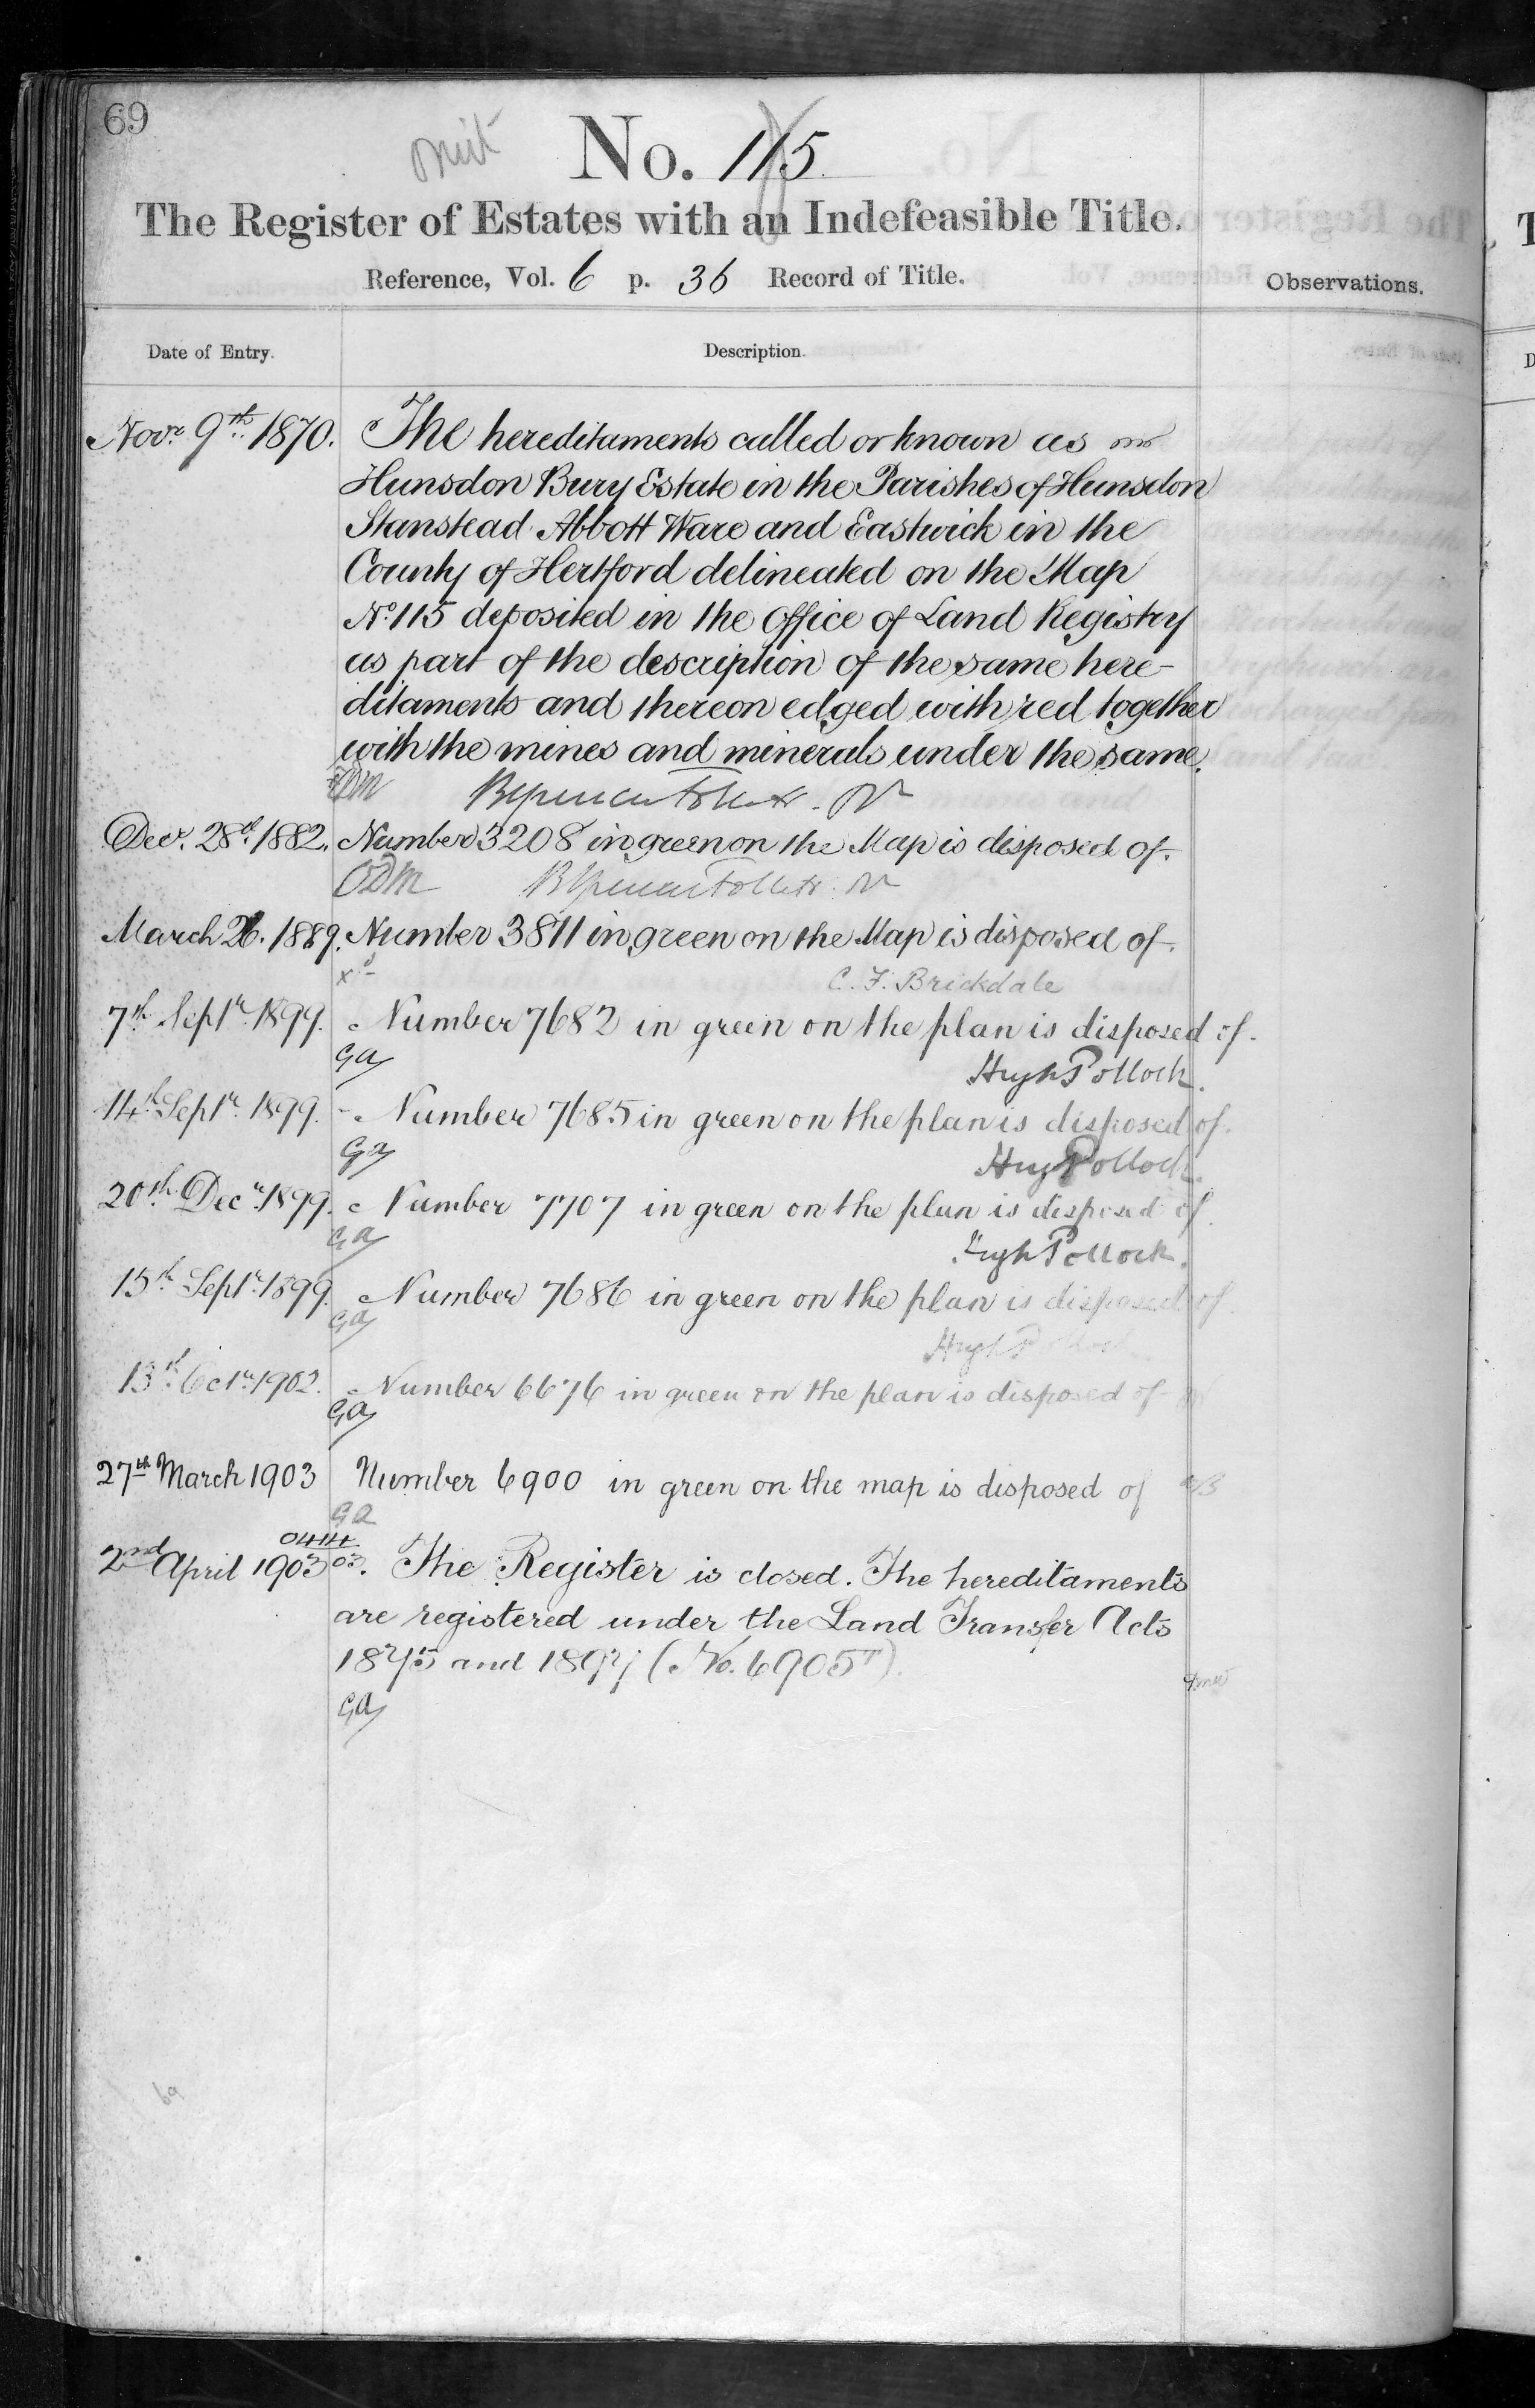 69
omit
No. 115
The Register of Estates with an Indefeasible Title.
Reference, Vol. 6 p. 36 Record of Title.
Observations.
Date of Entry.
Description.
Novr. 9th. 1870. The hereditaments called or known as
Hunsdon Bury Estate in the Parishes of Hunsdon
Stanstead Abbott Ware and Eastwick in the
County of Hertford delineated on the Map
No. 115 deposited in the Office of Land Registry
as part of the description of the same here-
ditaments and thereon edged with red together
with the mines and minerals under the same.
Decr. 28th. 1882. Number 3208 in green on the Map is disposed of.
March 26. 1889. Number 3811 in green on the Map is disposed of.
C. F. Brickdale
7th Septr. 1899. Number 7682 in green on the plan is disposed of.
GA
Hugh Pollock.
14th Septr. 1899. - Number 7685 in green on the plan is disposed of.
GA
Hugh Pollock.
20th Decr. 1899. Number 7707 in green on the plan is disposed of
GA
Hugh Pollock.
15th Septr. 1899. Number 7686 in green on the plan is disposed of
GA
Hugh Pollock
13th Octr. 1902. Number 6676 in green on the plan is disposed of
GA
27th March 1903 Number 6900 in green on the map is disposed of
GA
0444
03.
2nd April 1903 The Register is closed. The hereditaments
are registered under the Land Transfer Acts
1875 and 1897 (No. 6905)
GA
69